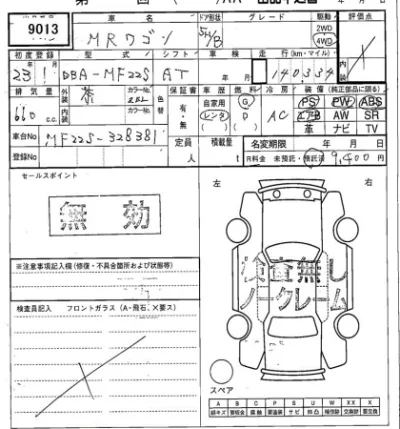 9013
車名 ドア形状 グレード 駆動 評価点
MRワゴン 5H/B 2WD 4WD
初度登録 型式 シフト 車検 走行(km・マイル)
23 1 DBA-MF22S AT 年 月 140334
排気量 外装 紫 カラーNo. 色替 保証書 車歴 燃料 冷房 装備(純正部品に限る)
660 c.c. 内装 カラーNo. 有・無 自家用 レンタ ( ) G D ( ) AC PS PW ABS
エアB AW SR
革 ナビ TV
車台No MF22S-328381 定員 積載量 名変期限 年 月 日
登録No 人 t R料金 未預託・預託済 9,400円
セールスポイント 左 右
無効
※注意事項記入欄(修復・不具合箇所および状態等)
検査員記入 フロントガラス(A・飛石、×要ス)
検査無し
ノークレーム
スペア
A B C P S U W X XX